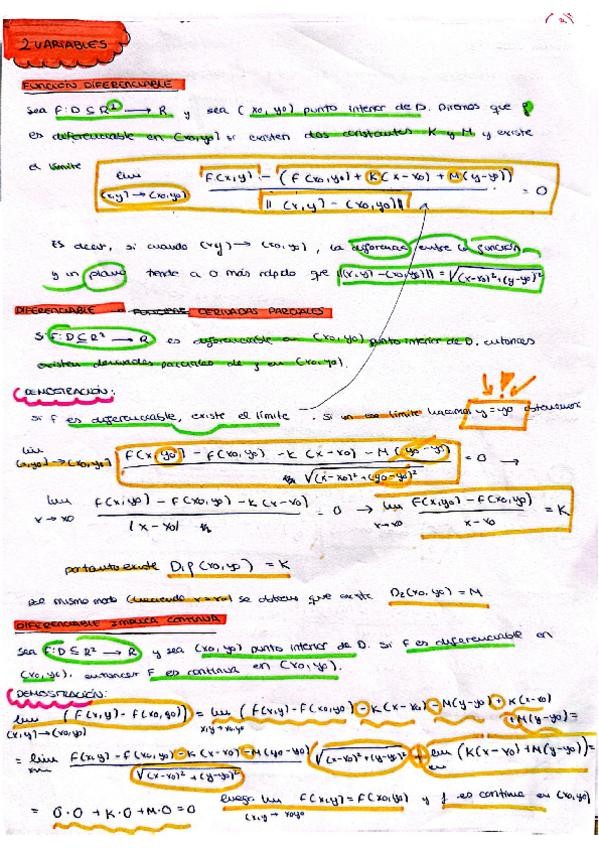 2 VARIABLES
FUNCIÓN DIFERENCIABLE
Sea F: D ⊆ R² → R y sea (x0, y0) punto interior de D. Diremos que f
es diferenciable en (x0, y0) si existen dos constantes K y M y existe
el límite lim (x,y) → (x0,y0) F(x,y) - (F(x0,y0) + K(x-x0) + M(y-y0)) / ||(x,y) - (x0,y0)|| = 0
Es decir, si cuando (x,y) → (x0,y0), la diferencia entre la función
y un plano tiende a 0 más rápido que ||(x,y) - (x0,y0)|| = √(x-x0)² + (y-y0)²
DIFERENCIABLE DERIVADAS PARCIALES
Si F: D ⊆ R² → R es diferenciable en (x0,y0) punto interior de D. entonces
existen derivadas parciales de f en (x0,y0).
DEMOSTRACIÓN:
Si F es diferenciable, existe el límite. Si en ese límite hacemos y = y0 obtenemos
lim (x,y0) → (x0,y0) F(x,y0) - F(x0,y0) - K(x-x0) - M(y0-y0) / √(x-x0)² + (y0-y0)² = 0 →
lim x → x0 F(x,y0) - F(x0,y0) - K(x-x0) / |x-x0| = 0 → lim x→x0 F(x,y0) - F(x0,y0) / x-x0 = K
por tanto existe D1F(x0,y0) = K
Del mismo modo (haciendo x=x0) se obtiene que existe D2(x0,y0) = M
DIFERENCIABLE IMPLICA CONTINUA
Sea F: D ⊆ R² → R y sea (x0,y0) punto interior de D. Si F es diferenciable en
(x0,y0), entonces F es continua en (x0,y0).
DEMOSTRACIÓN:
lim (x,y) → (x0,y0) (F(x,y) - F(x0,y0)) = lim x,y→x0,y0 (F(x,y) - F(x0,y0) - K(x-x0) - M(y-y0) + K(x-x0)
+ M(y-y0) =
= lim F(x,y) - F(x0,y0) - K(x-x0) - M(y0-y0) / √(x-x0)² + (y-y0)² √(x-x0)² + (y-y0)² + lim (K(x-x0) + M(y-y0)) =
= 0·0 + K·0 + M·0 = 0 luego lim (x,y → x0y0 F(x,y) = F(x0,y0) y f es continua en (x0,y0)